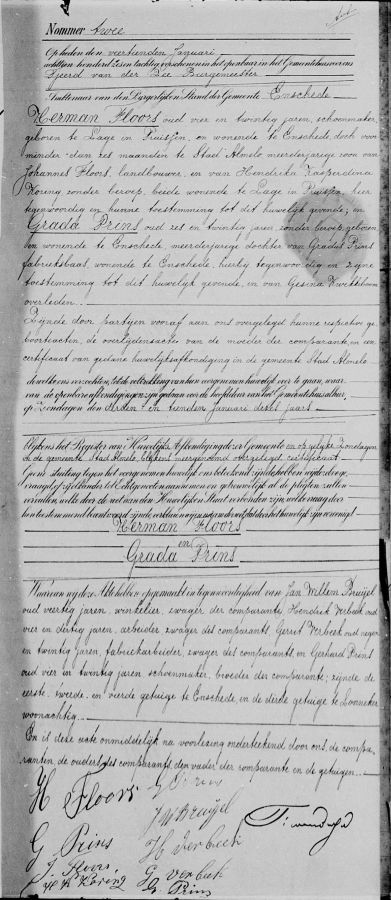 Nommer twee
Op heden den veertienden Januari
achttien honderd zes en tachtig verschenen in het openbaar in het Gemeentehuis voor ons
Tjeerd van der Zee Burgemeester
Ambtenaar van den Burgerlijken Stand der Gemeente Enschede
Herman Floors oud vier en twintig jaren, schoenmaker
geboren te Lage in Pruissen, en wonende te Enschede, doch voor
minder dan zes maanden te Stad Almelo meerderjarige zoon van
Johannes Floors, landbouwer, en van Hendrika Kasperdina
Koring zonder beroep, beide wonende te Lage in Pruissen, hier
tegenwoordig en hunne toestemming tot dit huwelijk gevende; en
Grada Prins oud zes en twintig jaren zonder beroep, geboren
en wonende te Enschede, meerderjarige dochter van Gradus Prins
fabrieksbaas, wonende te Enschede, hierbij tegenwoordig en zijne
toestemming tot dit huwelijk gevende, en van Gesina
overleden.
Zijnde door partijen vooraf aan ons overgelegd hunne respective ge
boorteacten, de overlijdensacte van de moeder der comparante, en een
certificaat van gedane huwelijksafkondiging in de gemeente Stad Almelo
dewelke ons verzochten, tot de voltrekking van hun voorgenomen huwelijk over te gaan, waar
van de openbare afkondigingen zijn gedaan voor de hoofddeur van het Gemeentehuis alhier,
op Zondagen den derden en tienden Januari dezes jaars
blijkens het Register van Huwelijks Afkondiging dezer Gemeente en op gelijke Zondagen
in de gemeente Stad Almelo, blijkens overgelegd certificaat
Herman Floors
en
Grada Prins
Waarvan wij deze Akte hebben opgemaakt in tegenwoordigheid van Jan Willem Bruijel
oud veertig jaren, winkelier, zwager der comparante Hendrik Verbeek oud
vier en dertig jaren, arbeider zwager des comparants Gerret Verbeek oud negen
en twintig jaren, fabriekarbeider, zwager des comparants, en Gerhard Prins
oud vier en twintig jaren schoenmaker, broeder der comparante; zijnde de
eerste, tweede en vierde getuige te Enschede, en de derde getuige te Lonneker
woonachtig.
En is deze acte onmiddelijk na voorlezing onderteekend door ons, de compa
ranten, de ouders des comparants, den vader der comparante en de getuigen.
H Floors
G Prins
J W Bruijel
G Prins
H Verbeek
J. Floors
G Verbeek
H K Koring
G Prins